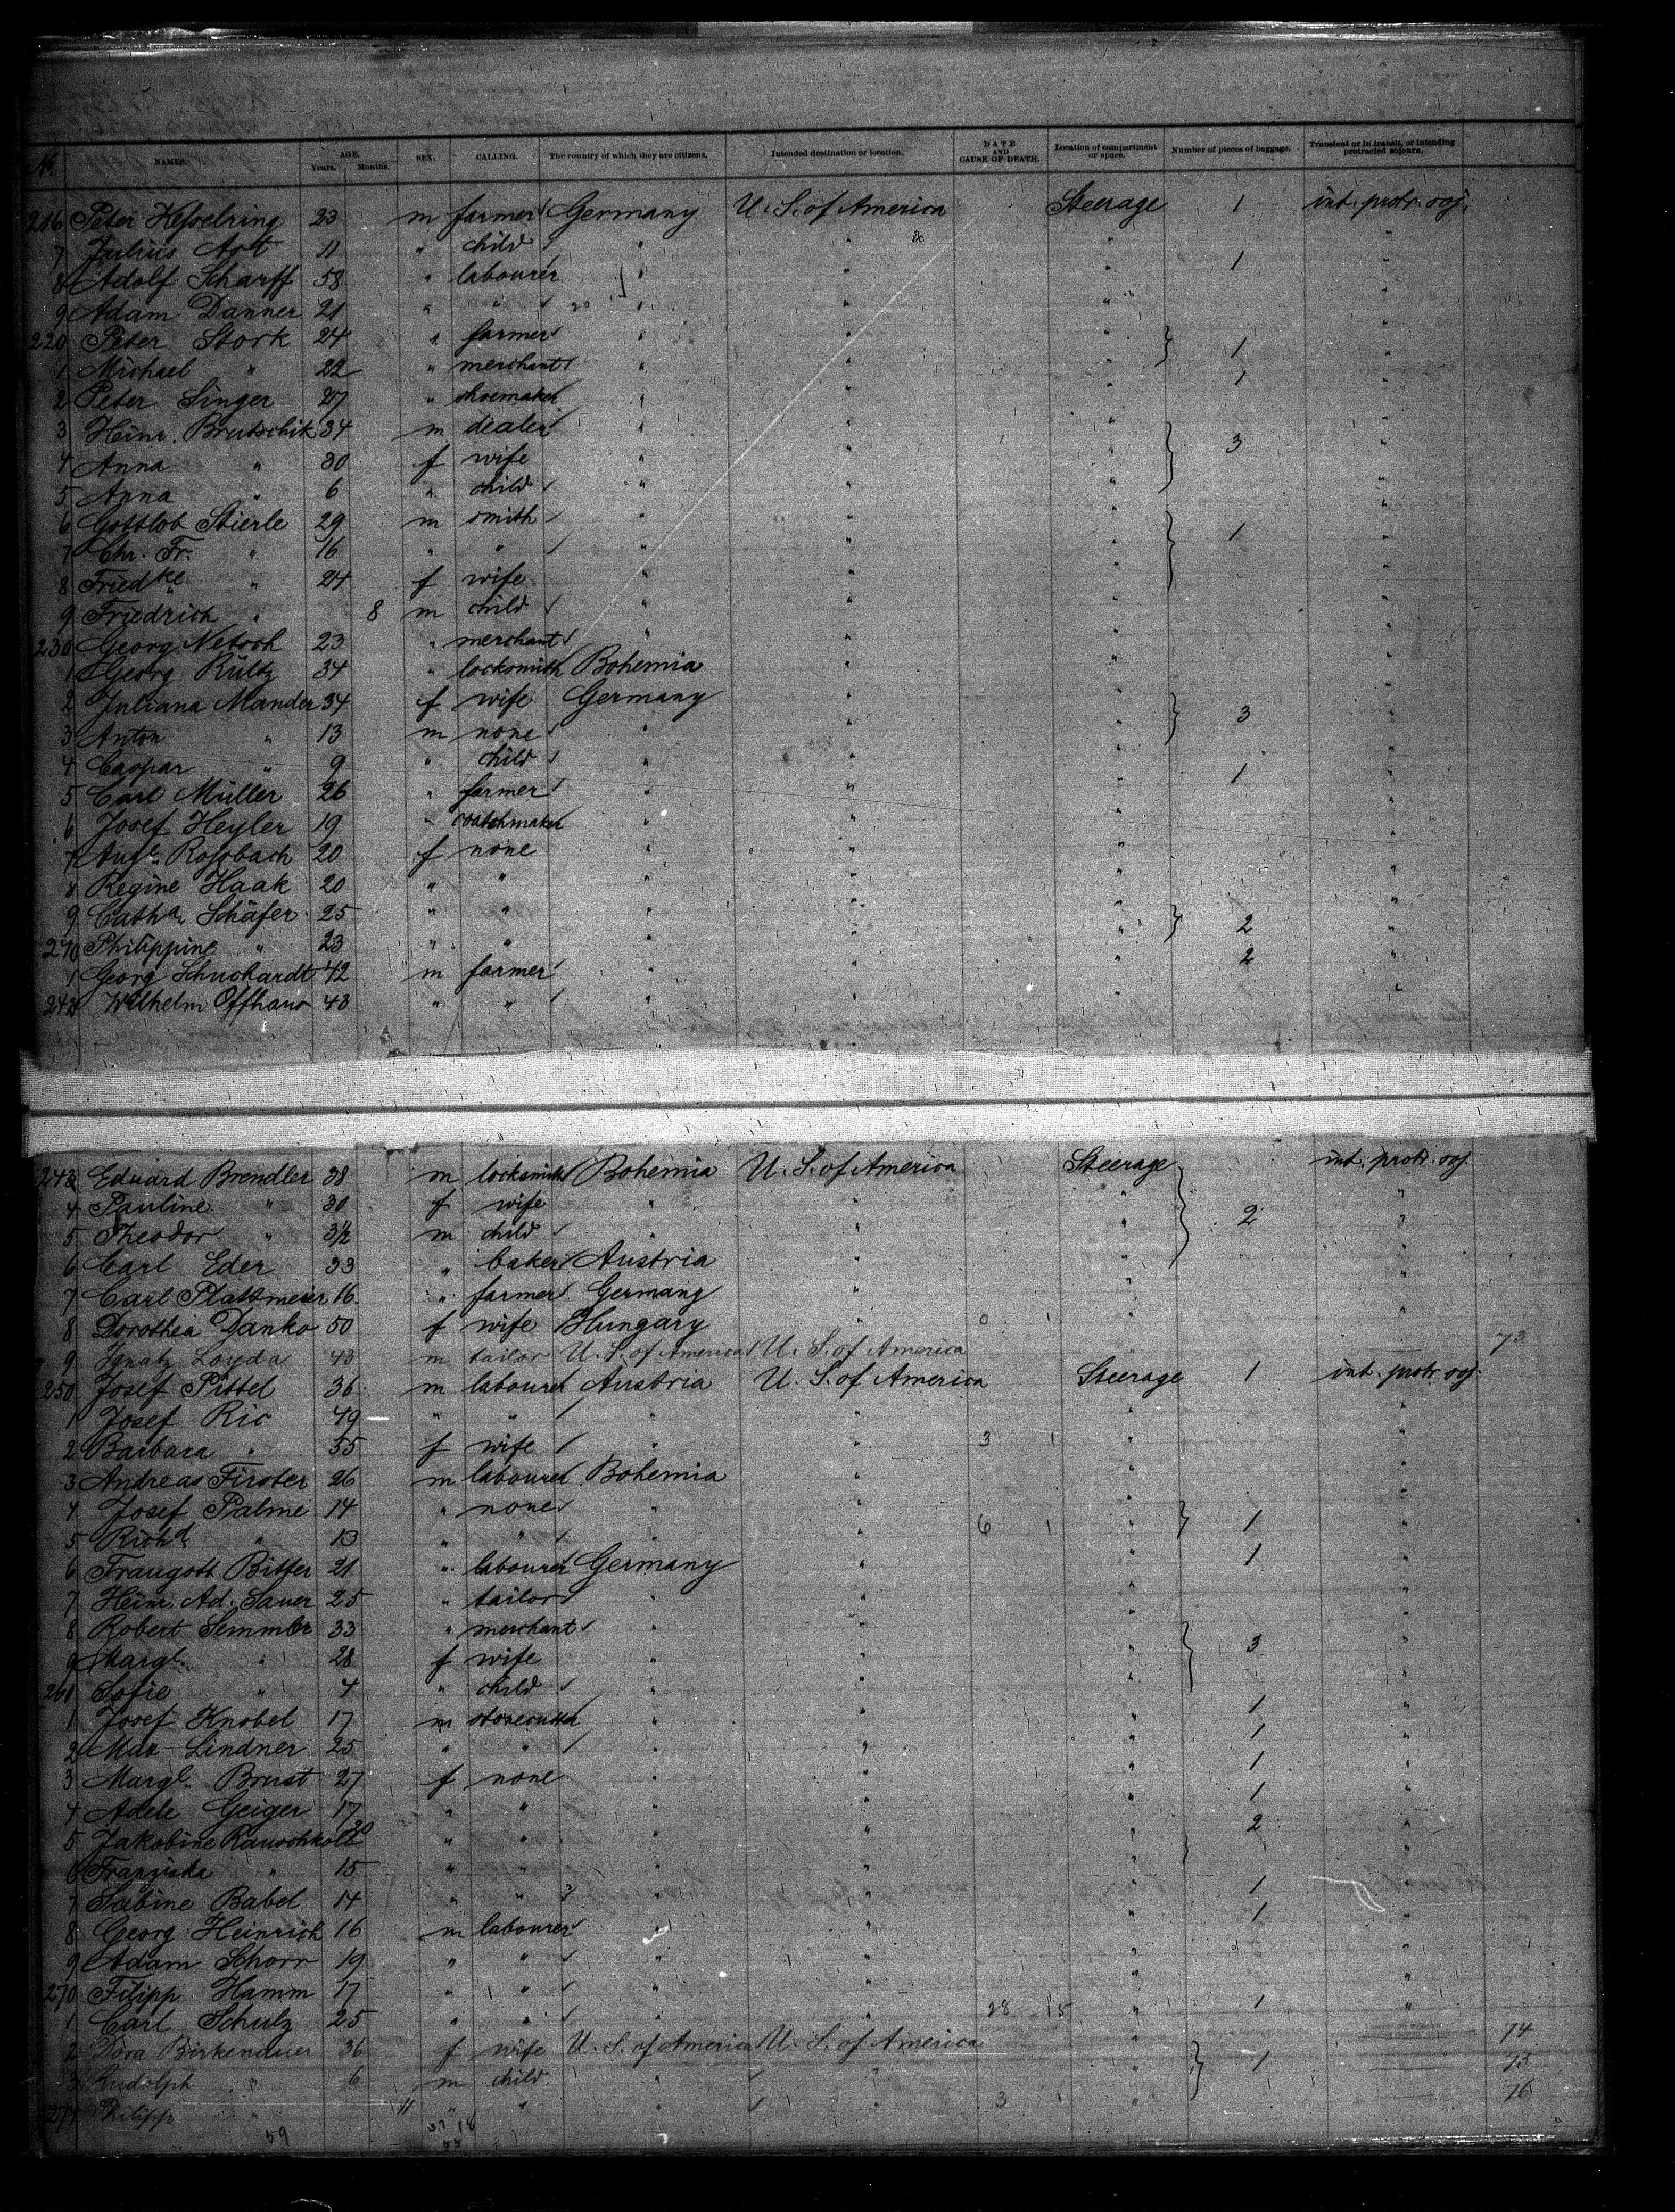 No. NAMES. AGE. Years. Months. SEX. CALLING. The country of which they are citizens. Intended destination or location. DATE AND CAUSE OF DEATH. Location of compartment or space. Number of pieces of baggage. Transient or in transit, or intending protracted sojourn.
216 Peter Hesselring 23 m farmer Germany U. S. of America Steerage 1 int. protr. soj.
7 Julius Ast 11 " child " " " "
8 Adolf Scharff 58 " labourer " " " 1 "
9 Adam Danner 21 " " " " " "
220 Peter Stork 24 " farmer " " " "
1 Michael " 22 " merchant " " " 1 "
2 Peter Singer 27 " shoemaker " " " 1 "
3 Heinr. Brutschik 34 m dealer " " " "
4 Anna " 30 f wife " " " 3 "
5 Anna " 6 " child " " " "
6 Gottlob Stierle 29 m smith " " " "
7 Chr. Fr. " 16 " " " " " 1 "
8 Friedke " 24 f wife " " " "
9 Friedrich " 8 m child " " " "
230 Georg Netsch 23 " merchant " " " "
1 Georg Rültz 34 " locksmith Bohemia " " "
2 Juliana Mander 34 f wife Germany " " "
3 Anton " 13 m none " " " 3 "
4 Caspar " 9 " child " " " "
5 Carl Müller 26 " farmer " " " 1 "
6 Josef Heyler 19 " watchmaker " " " "
7 Aug. Rossbach 20 f none " " " "
8 Regine Haak 20 " " " " " "
9 Catha. Schäfer 25 " " " " " "
240 Philippine " 23 " " " " " 2 "
1 Georg Schuchardt 42 m farmer " " " 2 "
242 Wilhelm Offhaus 43 " " " " "
243 Eduard Brendler 38 m locksmith Bohemia U. S. of America Steerage int. protr. soj.
4 Pauline " 30 f wife " " " 2 "
5 Theodor " 3½ m child " " " "
6 Carl Eder 33 " baker Austria " " "
7 Carl Plattmeier 16 " farmer Germany " " "
8 Dorothea Danko 50 f wife Hungary " 0 1 "
9 Ignatz Loyda 43 m tailor U. S. of America U. S. of America 73
250 Josef Pittel 36 m labourer Austria U. S. of America Steerage 1 int. protr. soj.
1 Josef Ric 49 " " " " " "
2 Barbara " 55 f wife " " 3 1 " "
3 Andreas Firster 26 m labourer Bohemia " " "
4 Josef Palme 14 " none " " " "
5 Richd. " 13 " " " " 6 1 " 1 "
6 Traugott Bitter 21 " labourer Germany " " 1 "
7 Heinr. Ad. Sauer 25 " tailor " " " "
8 Robert Semmler 33 " merchant " " " "
9 Margt. " 28 f wife " " " 3 "
260 Sofie " 4 " child " " " "
1 Josef Knobel 17 m stonecutter " " " 1 "
2 Max Lindner 25 " " " " " 1 "
3 Margt. Brust 27 f none " " " 1 "
4 Adele Geiger 17 " " " " " 1 "
5 Jakobine Rauschkolb 20 " " " " " 2 "
6 Franziska " 15 " " " " " "
7 Sabine Babel 14 " " " " " 1 "
8 Georg Heinrich 16 m labourer " " " 1 "
9 Adam Schorr 19 " " " " " "
270 Filipp Hamm 17 " " " " " "
1 Carl Schulz 25 " " " " 28 15 " 1 "
2 Dora Birkenauer 36 f wife U. S. of America U. S. of America " 74
3 Rudolph " 6 m child " " " 1 75
274 Philipp " 11 " " " " 3 1 " 76
59